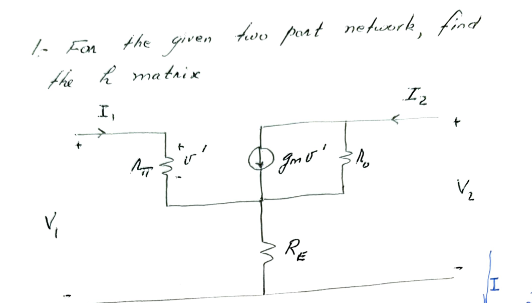 1.- For the given two port network, find
the h matrix
I₁
I₂
+
+
+
rπ
v'
-
gmv'
r₀
V₂
V₁
RE
-
-
I